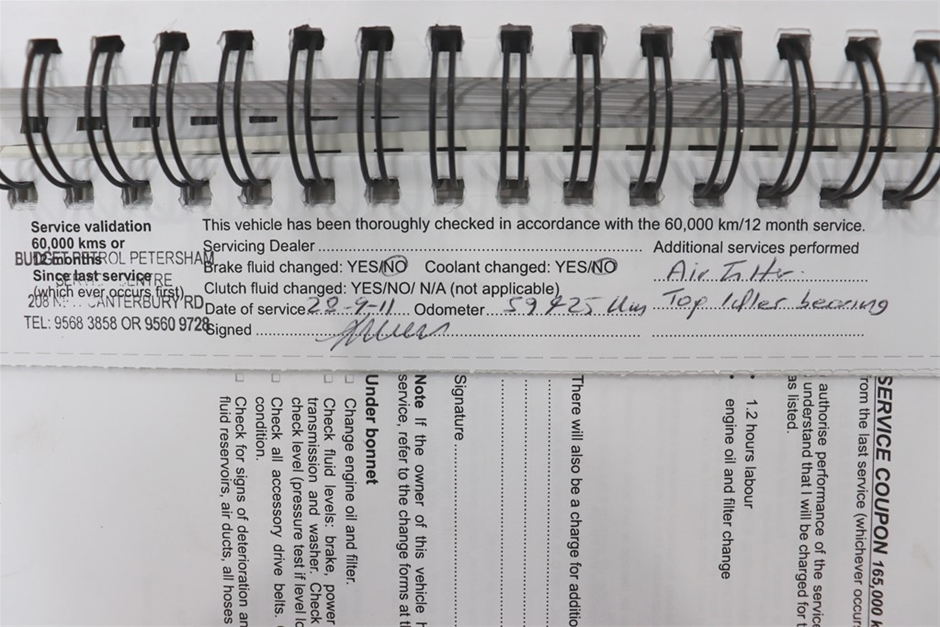 Service validation
60,000 kms or
12 months
Since last service
(which ever occurs first)
BUDGET PETROL PETERSHAM
CENTRE
208 CANTERBURY RD
TEL: 9568 3858 OR 9560 9728
This vehicle has been thoroughly checked in accordance with the 60,000 km/12 month service.
Servicing Dealer
Brake fluid changed: YES/NO Coolant changed: YES/NO
Clutch fluid changed: YES/NO/ N/A (not applicable)
Date of service 22-9-11 Odometer 59425 Km
Signed
Additional services performed
Air Filter
Top Idler bearing
SERVICE COUPON 165,000 k
from the last service (whichever occur
authorise performance of the service
understand that I will be charged for t
as listed.
• 1.2 hours labour
• engine oil and filter change
There will also be a charge for additio
Signature
Note If the owner of this vehicle h
service, refer to the change forms at t
Under bonnet
Change engine oil and filter.
Check fluid levels: brake, power
transmission and washer. Check
check level (pressure test if level lo
Check all accessory drive belts.
condition.
Check for signs of deterioration an
fluid reservoirs, air ducts, all hoses